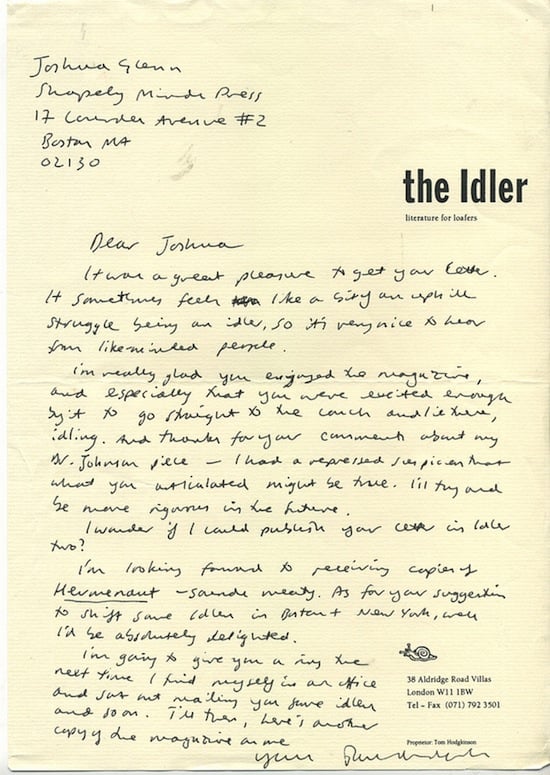 Joshua Glenn
Shapely Minds Press
17 Avenue #2
Boston MA
02130
the Idler
literature for loafers
Dear Joshua
It was a great pleasure to get your letter.
It sometimes feels like a bit of an uphill
struggle being an idler, so it's very nice to hear
from likeminded people.
I'm really glad you enjoyed the magazine,
and especially that you were excited enough
by it to go straight to the couch and lie there,
idling. And thanks for your comments about my
Dr. Johnson piece – I had a repressed suspicion that
what you articulated might be true. I'll try and
be more rigorous in the future.
I wonder if I could publish your letter in Idler
two?
I'm looking forward to receiving copies of
Hermenaut – sounds meaty. As for your suggestion
to shift some Idlers in Boston + New York, well
I'd be absolutely delighted.
I'm going to give you a ring the
next time I find myself in an office
and sort out mailing you some idlers
and so on. Till then, here's another
copy of the magazine on me
yours
38 Aldridge Road Villas
London W11 1BW
Tel – Fax (071) 792 3501
Proprietor: Tom Hodgkinson